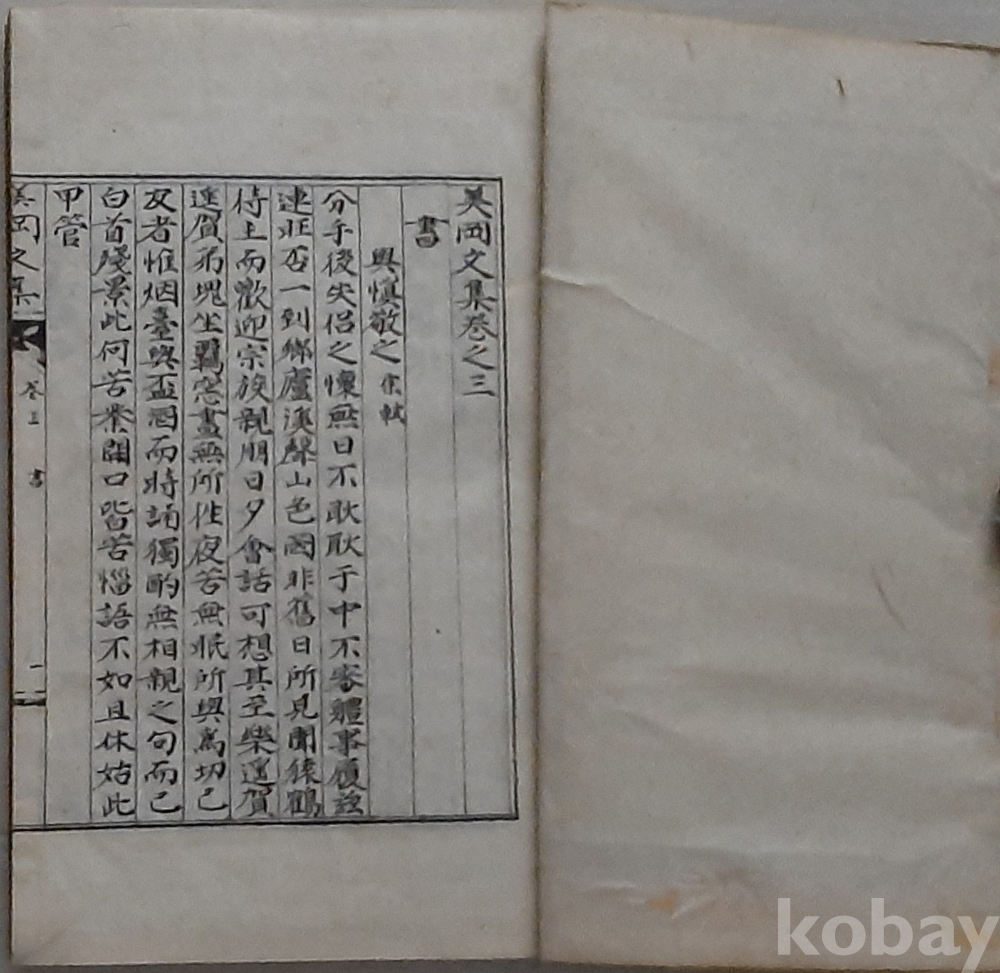 吴岡文集卷之三
書
與愼敬之 宗軾
分手後失侶之懷無日不耿耿于中不審軆事履玆
連旺否一到鄕廬溪聲山色固非舊日所見聞猿鶴
待主而歡迎宗族親朋日夕會話可想其至樂遙賀
遙賀弟塊坐羈窓晝無所住夜苦無眠所與爲切己
友者惟烟臺與盃酒而時誦獨酌無相親之句而已
白首殘景此何苦業開口皆苦惱語不如且休姑此
甲管
岡文集
卷三 書
一
kobay